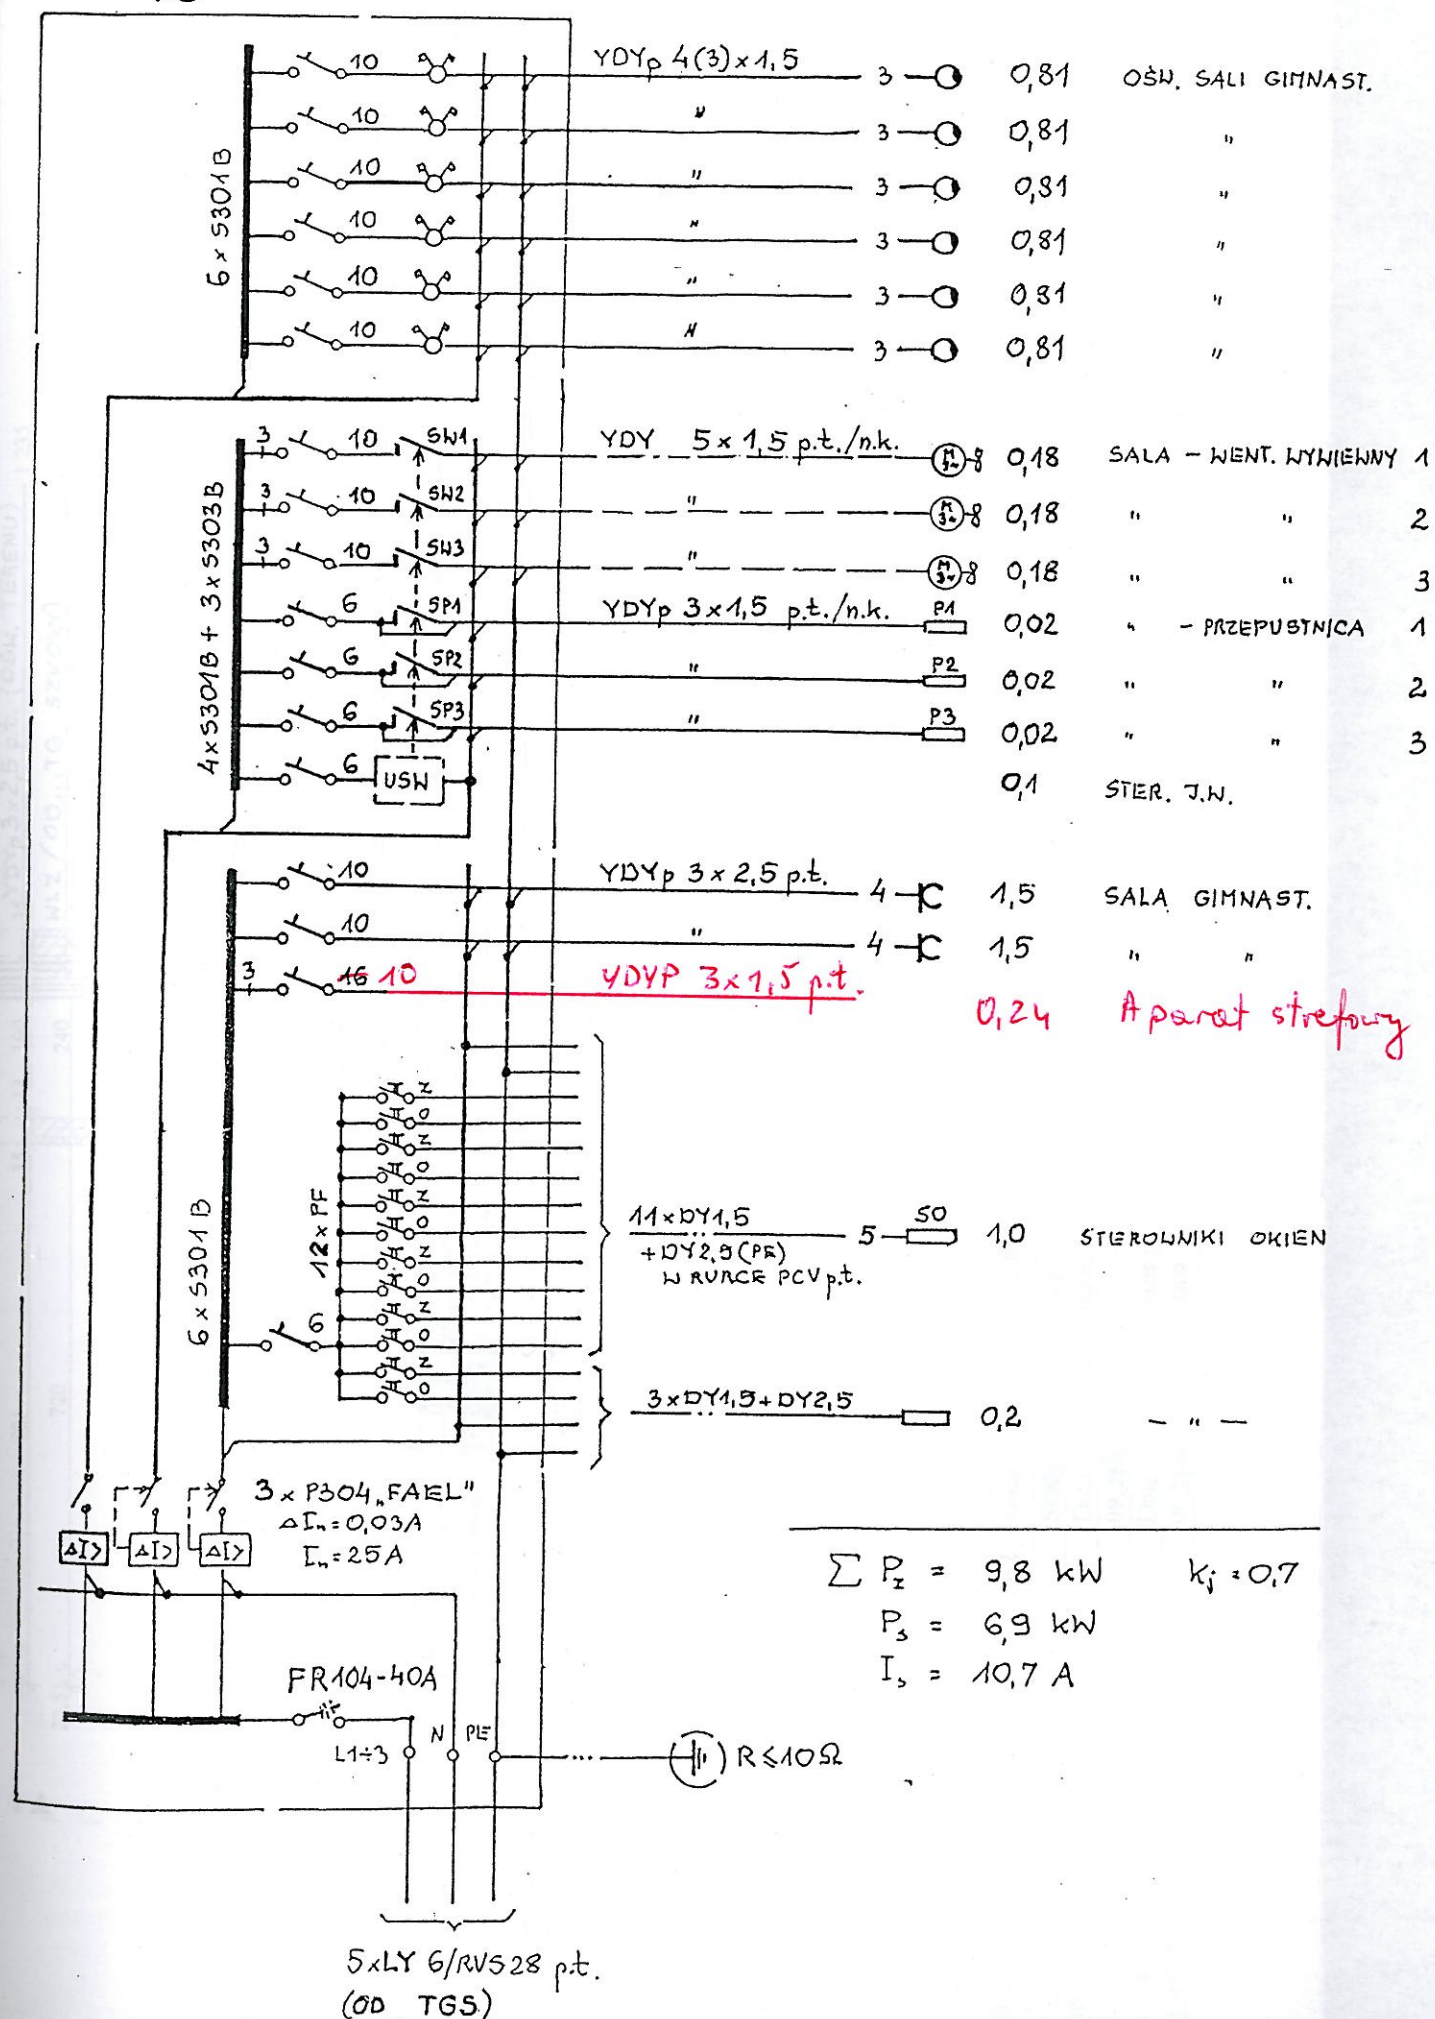 10 YDYp 4(3)x1,5 3 0,81 OŚW. SALI GIMNAST.
10 " 3 0,81 "
10 " 3 0,81 "
10 " 3 0,81 "
10 " 3 0,81 "
10 " 3 0,81 "
6 x S301B
3 10 SW1 YDY 5x1,5 p.t./n.k. M 3~ 0,18 SALA - WENT. WYWIEWNY 1
3 10 SW2 " M 3~ 0,18 " " 2
3 10 SW3 " M 3~ 0,18 " " 3
6 SP1 YDYp 3x1,5 p.t./n.k. P1 0,02 " - PRZEPUSTNICA 1
6 SP2 " P2 0,02 " " 2
6 SP3 " P3 0,02 " " 3
6 USW 0,1 STER. J.W.
4xS301B + 3xS303B
10 YDYp 3x2,5 p.t. 4 1,5 SALA GIMNAST.
10 " 4 1,5 " "
3 16 10 YDYP 3x1,5 p.t.
0,24 Aparat strefowy
Z
O
Z
O
Z
O
Z
O
Z
O
Z
O
12xPF
6
6 x S301B
11xDY1,5 5 SO 1,0 STEROWNIKI OKIEN
+DY2,5(PE)
W RURCE PCV p.t.
3xDY1,5+DY2,5 0,2 - " -
3 x P304 „FAEL"
ΔIn=0,03A
In=25A
ΔI> ΔI> ΔI>
∑ Pz = 9,8 kW kj=0,7
Ps = 6,9 kW
Is = 10,7 A
FR104-40A
L1÷3 N PE R≤10Ω
5xLY 6/RVS28 p.t.
(OD TGS)